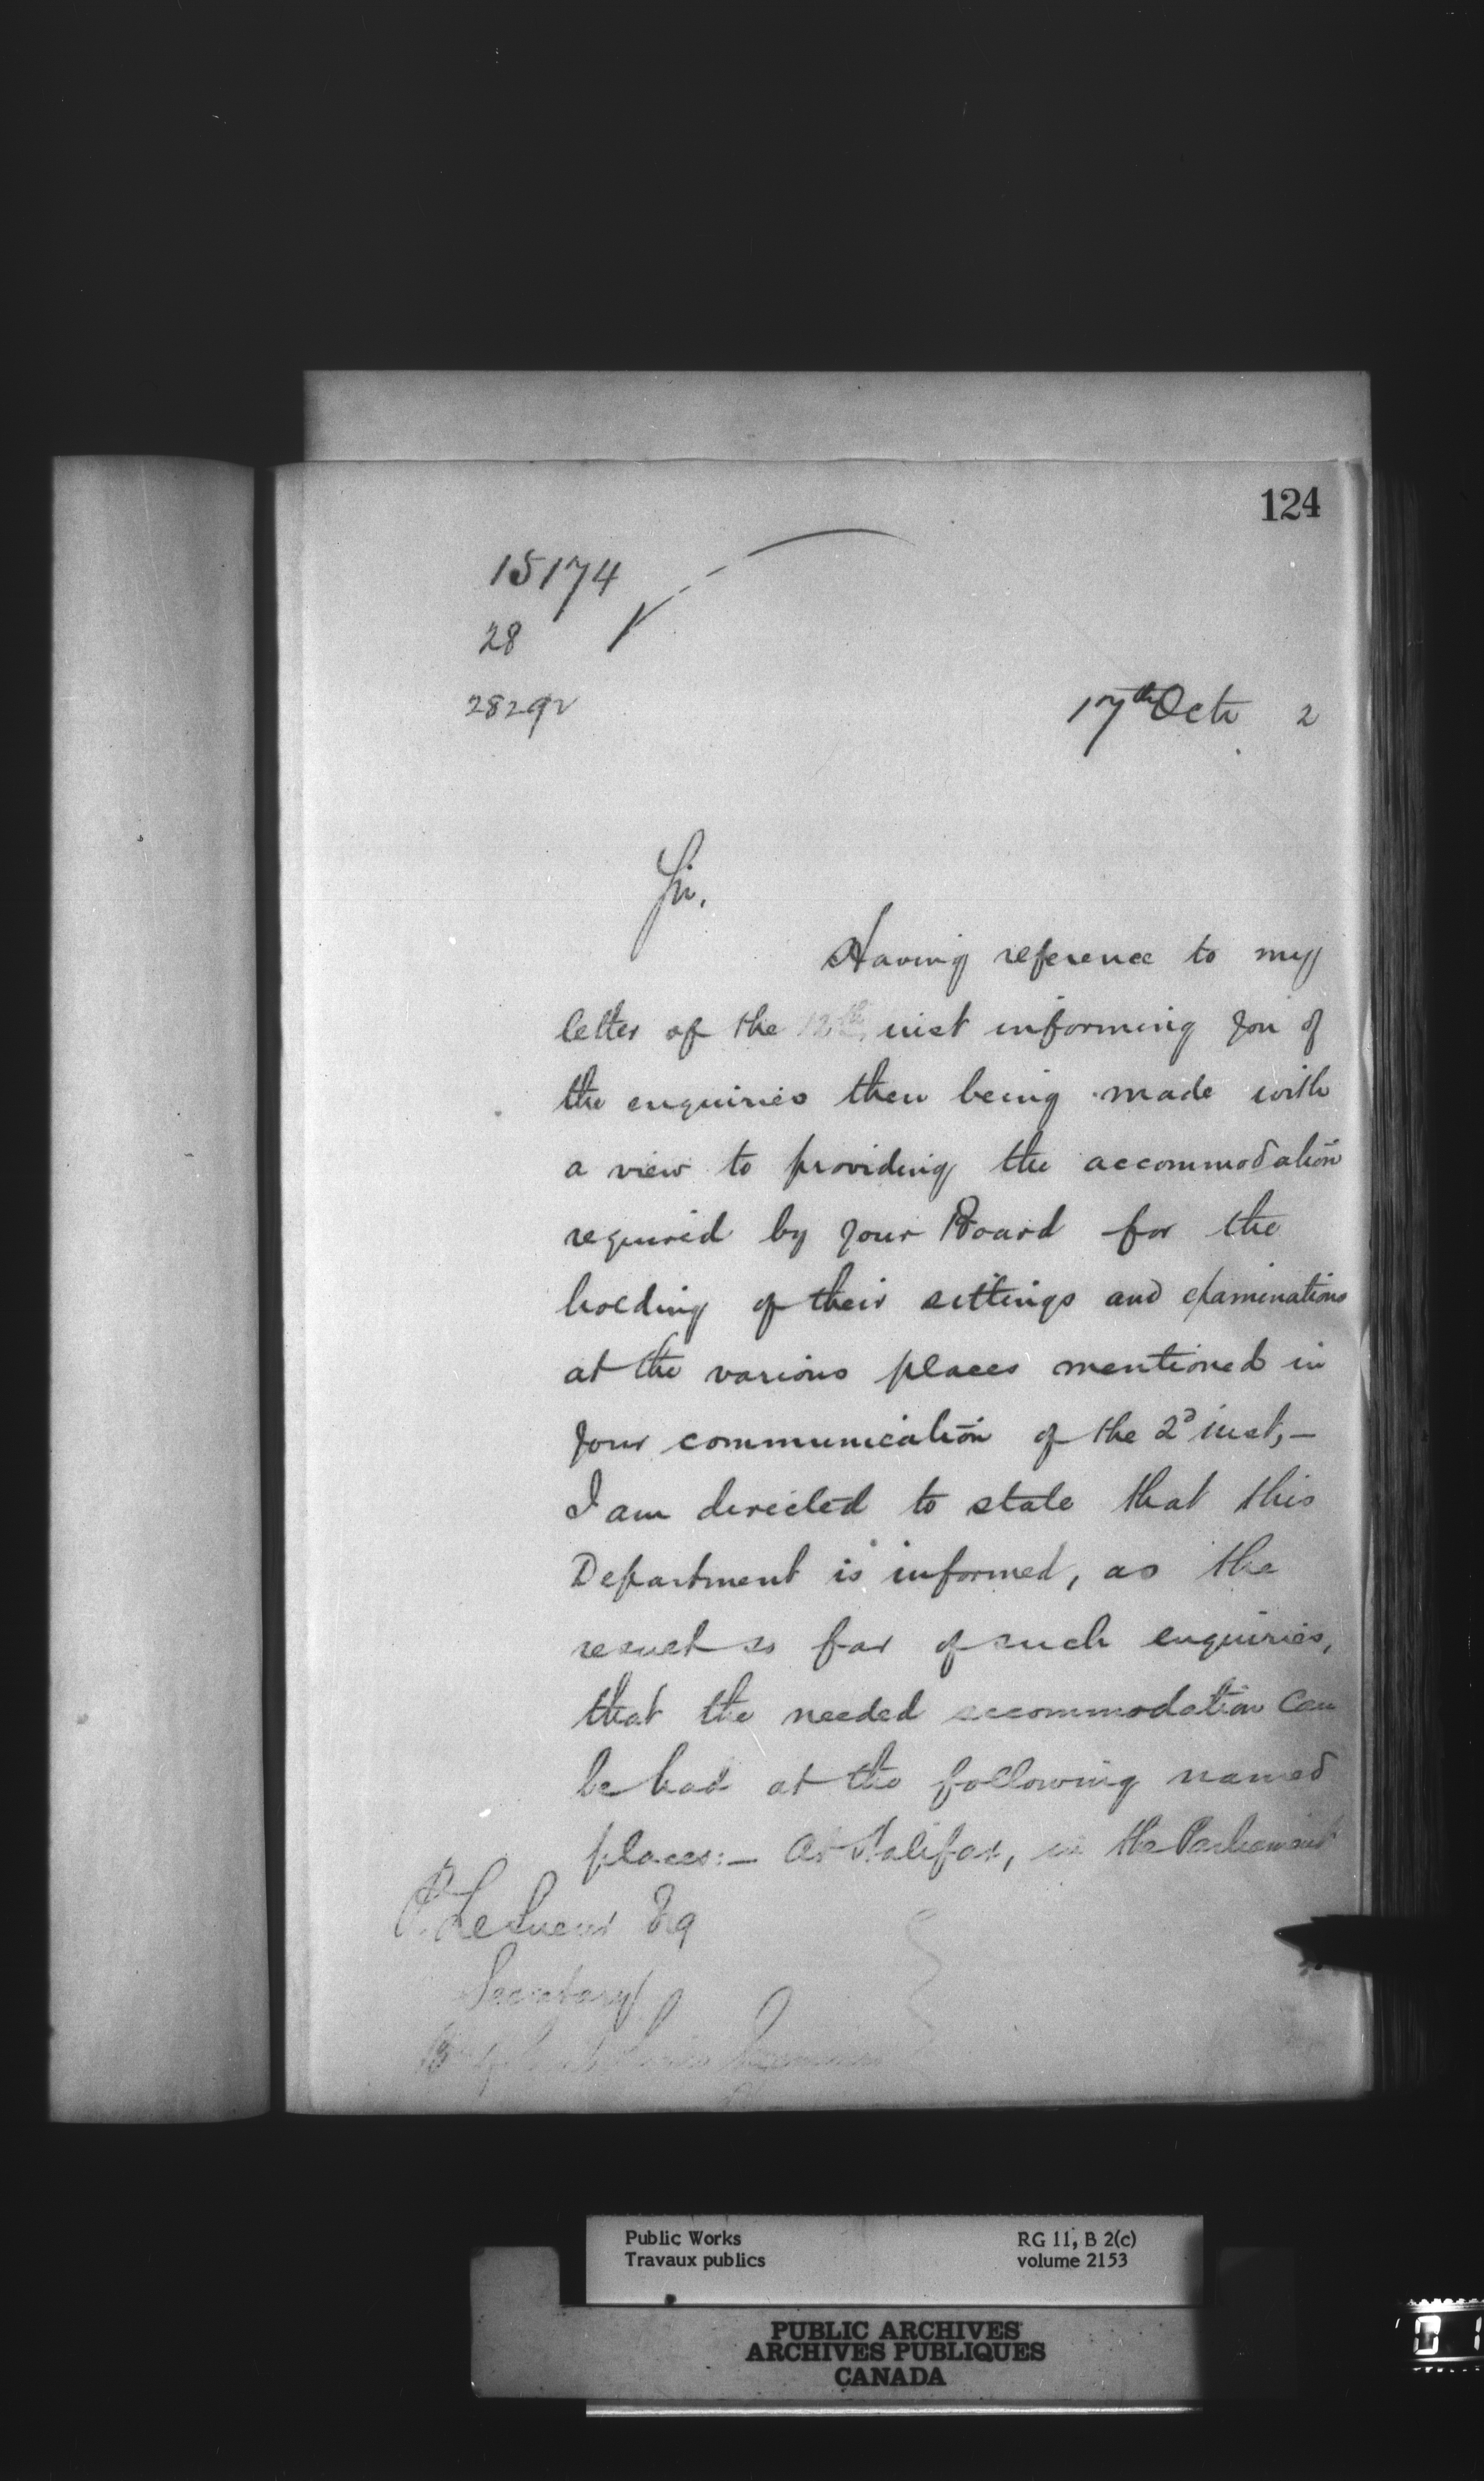 124
15174
28
28292
17th Octr 2
Sir,
Having reference to my
letter of the 12th inst informing you of
the enquiries then being made with
a view to providing the accommodation
required by your Board for the
holding of their sittings and examinations
at the various places mentioned in
your communication of the 2d inst, —
I am directed to state that this
Department is informed, as the
result so far of such enquiries,
that the needed accommodation can
be had at the following named
places: — At Halifax, in the Parliament
P. LeSueur Esq
Secretary
Public Works
Travaux publics
RG 11, B 2(c)
volume 2153
PUBLIC ARCHIVES
ARCHIVES PUBLIQUES
CANADA